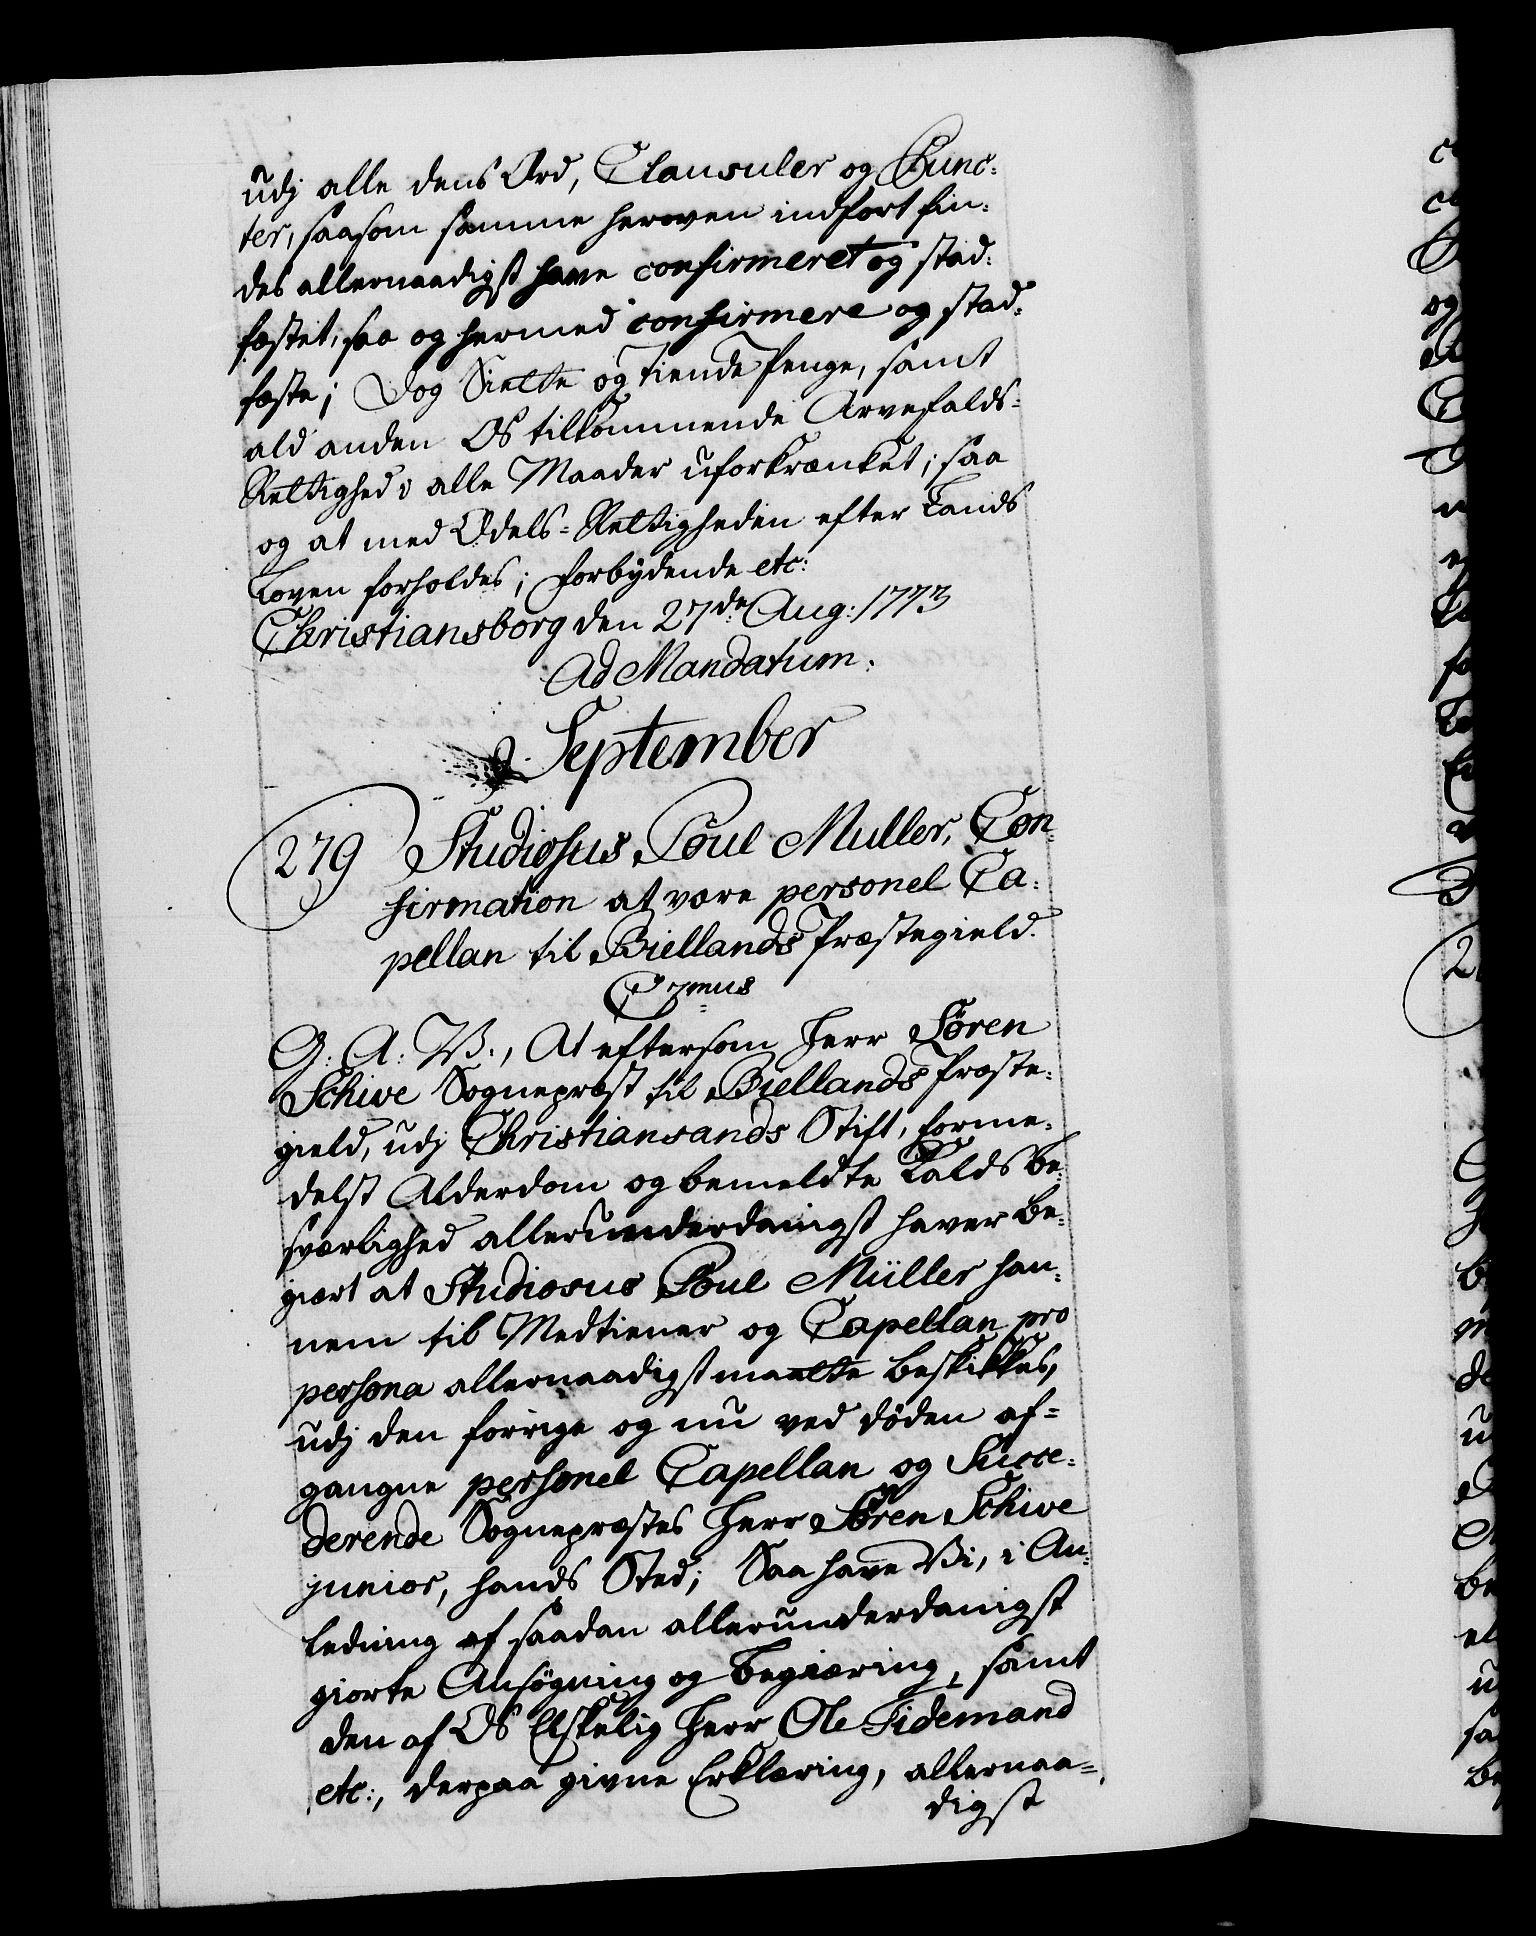 udj alle dens Ord, Clausuler og Punc-
ter, saasom samme heroven indført fin-
des allernaadigst have confirmeret og stad-
fæstet, saa og hermed confirmere og stad-
fæste; Dog Siette og Tiende Penge, samt
ald anden Os tilkommende Arvefalds-
Rettighed i alle Maader uforkrænket; saa
og at med Odels-Rettigheden efter Lands
Loven forholdes; forbydende etc:
Christiansborg den 27de Aug: 1773
Ad Mandatum:
September
279 Studiosus Poul Muller, Con-
firmation at være personel Ca-
pellan til Biellands Præstegield.
C 7mus
G. A: V., At eftersom Herr Søren
Schive Sognepræst til Biellands Præste-
gield, udj Christiansands Stift, forme-
delst Alderdom og bemeldte Kalds be-
sværlighed allerunderdanigst haver be-
giært at Studiosus Poul Müller han-
nem til Medtiener og Capellan pro
persona allernaadigst maatte beskikkes,
udj den forrige og nu ved døden af-
gangne personel Capellan og Succe-
derende Sognepræstes Herr Søren Schive
junior, hands Sted; Saa have Vi, i An-
ledning af saadan allerunderdanigst
giorte Ansøgning og begiæring, samt
den af Os Elskelig Herr Ole Tidemand
etc:, derpaa givne Erklæring, allernaa-
digst